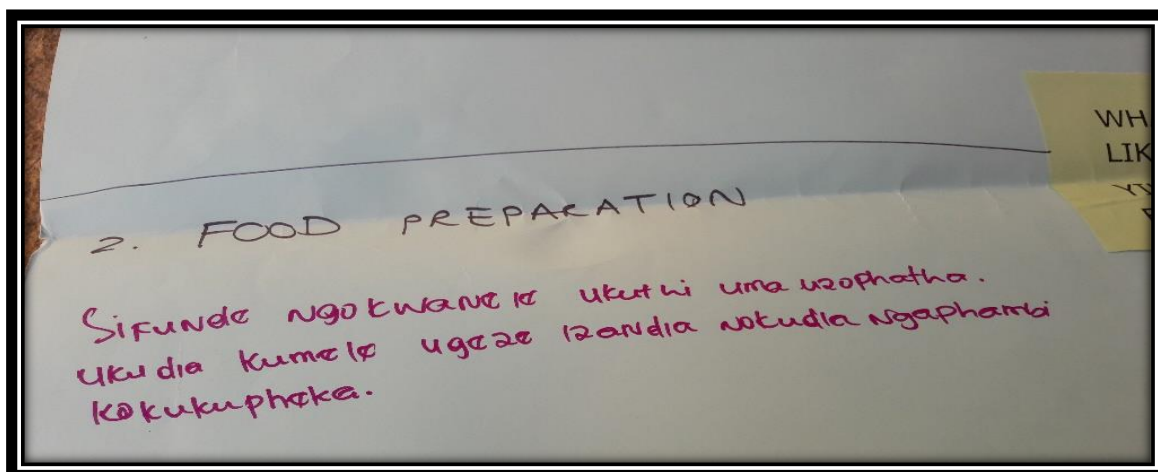 2. FOOD PREPARATION
Sifunde ngokwanele ukuthi uma uzophatha.
ukudla kumele ugeze izandla nokudla ngaphambi
kokukupheka.
WH
LIK